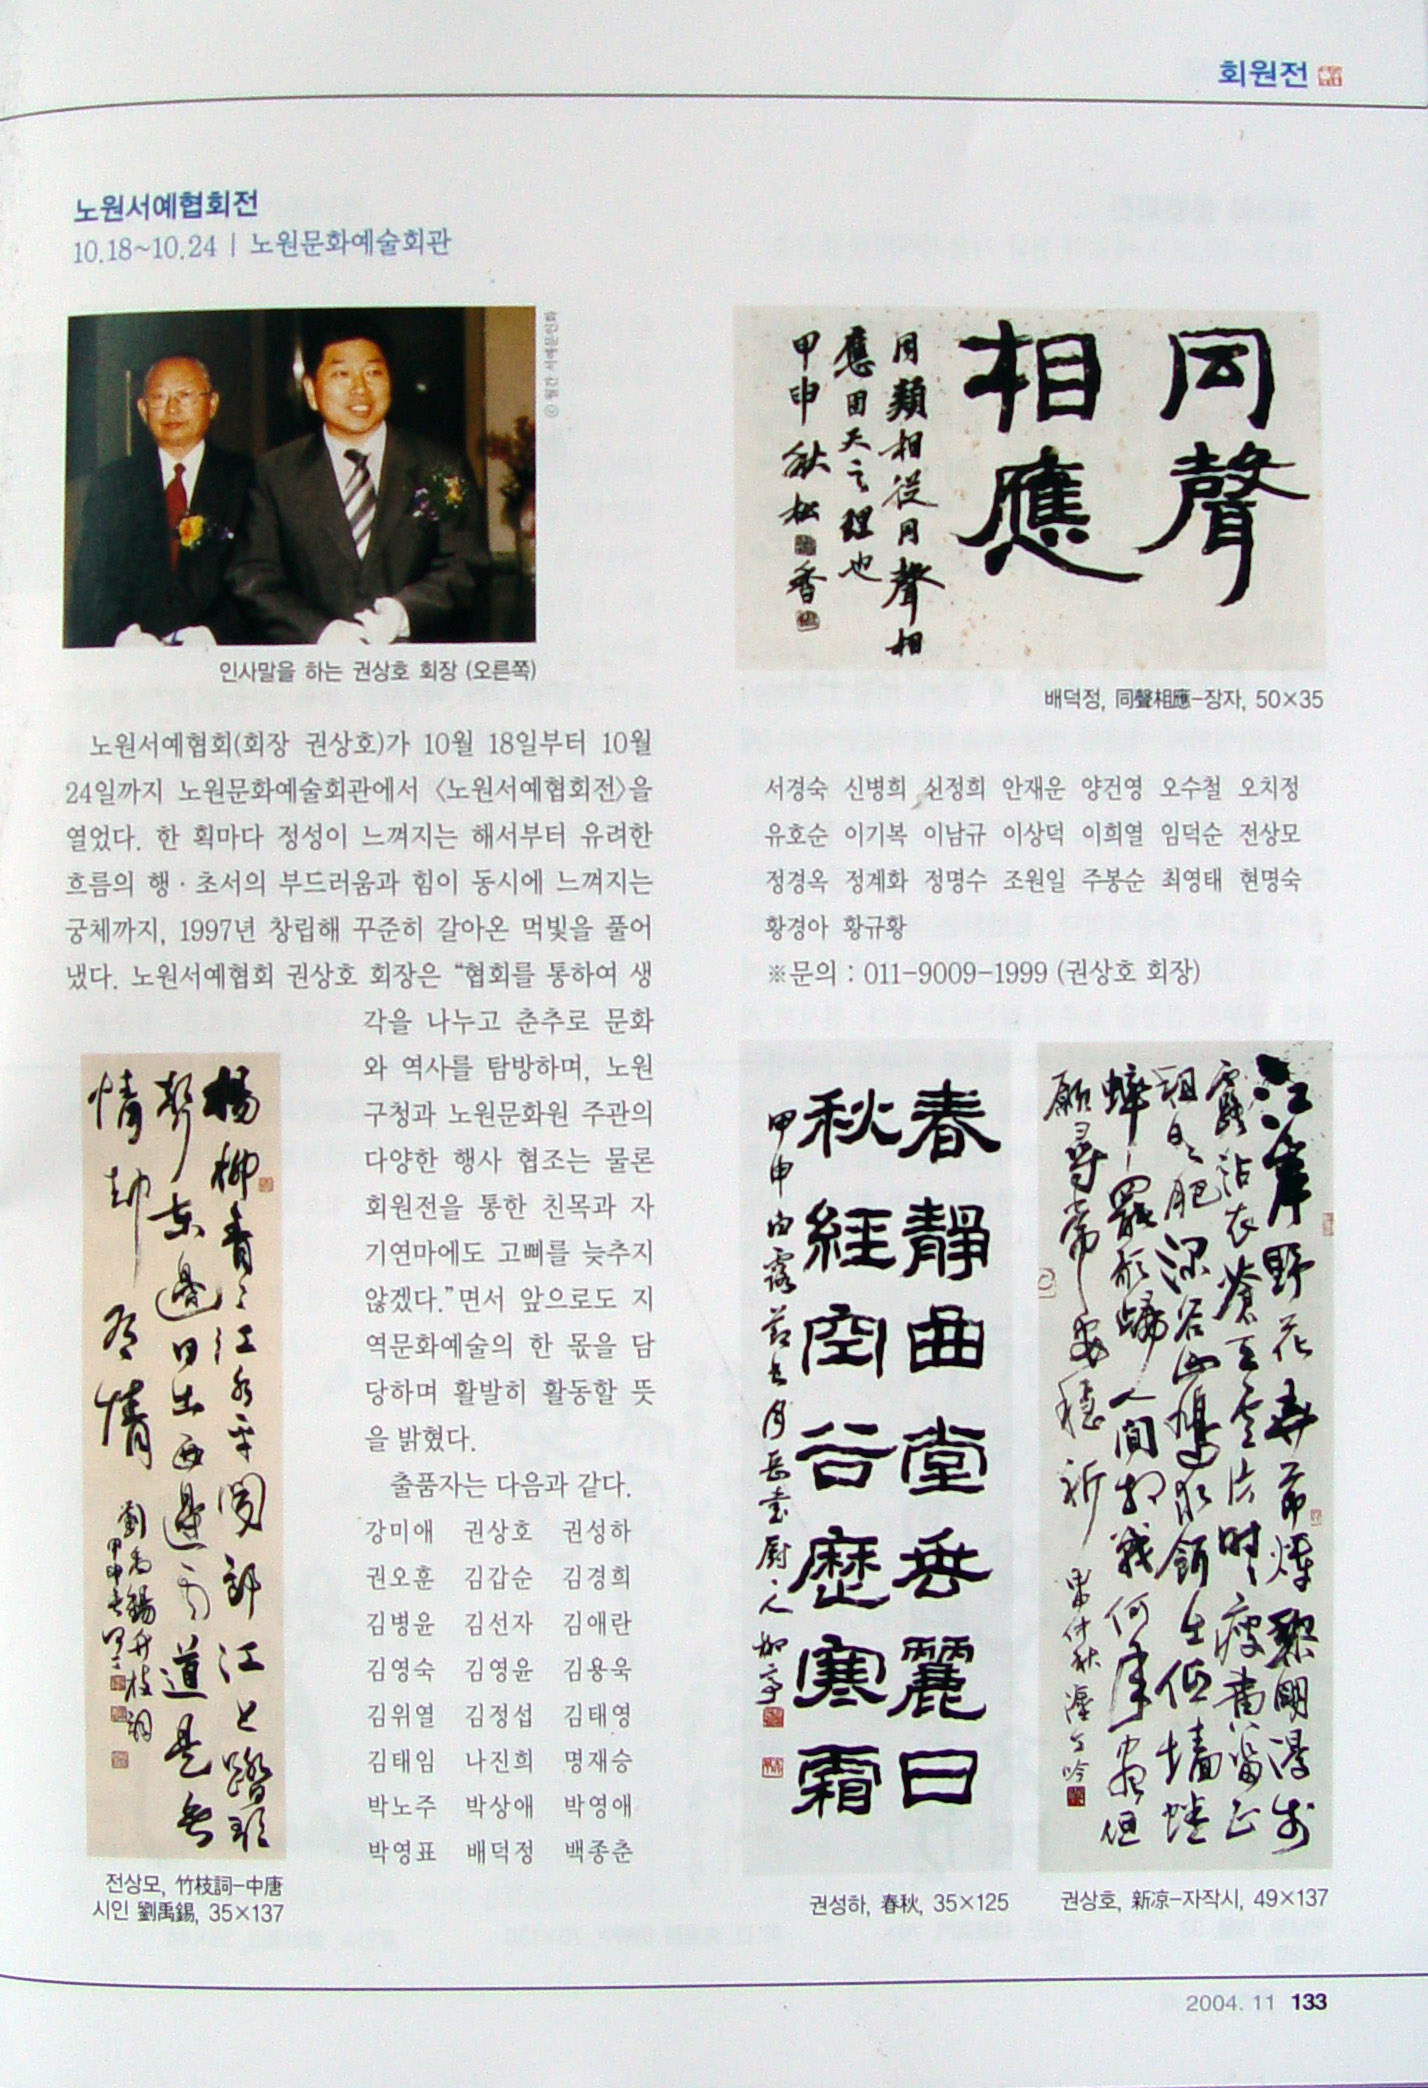 회원전
노원서예협회전
10.18~10.24 | 노원문화예술회관
ⓒ 월간 서예문인화
인사말을 하는 권상호 회장 (오른쪽)
노원서예협회(회장 권상호)가 10월 18일부터 10월
24일까지 노원문화예술회관에서 〈노원서예협회전〉을
열었다. 한 획마다 정성이 느껴지는 해서부터 유려한
흐름의 행·초서의 부드러움과 힘이 동시에 느껴지는
궁체까지, 1997년 창립해 꾸준히 갈아온 먹빛을 풀어
냈다. 노원서예협회 권상호 회장은 “협회를 통하여 생
각을 나누고 춘추로 문화
와 역사를 탐방하며, 노원
구청과 노원문화원 주관의
다양한 행사 협조는 물론
회원전을 통한 친목과 자
기연마에도 고삐를 늦추지
않겠다.”면서 앞으로도 지
역문화예술의 한 몫을 담
당하며 활발히 활동할 뜻
을 밝혔다.
출품자는 다음과 같다.
강미애 권상호 권성하
권오훈 김갑순 김경희
김병윤 김선자 김애란
김영숙 김영윤 김용욱
김위열 김정섭 김태영
김태임 나진희 명재승
박노주 박상애 박영애
박영표 배덕정 백종춘
楊柳青〻江水平聞郎江上踏歌
聲東邊日出西邊雨道是無
情却有情
劉禹錫竹枝詞
전상모, 竹枝詞-中唐
시인 劉禹錫, 35×137
同聲
相應
同類相從同聲相
應固天之理也
甲申秋松香
배덕정, 同聲相應-장자, 50×35
서경숙 신병희 신정희 안재운 양건영 오수철 오치정
유호순 이기복 이남규 이상덕 이희열 임덕순 전상모
정경옥 정계화 정명수 조원일 주봉순 최영태 현명숙
황경아 황규황
※문의 : 011-9009-1999 (권상호 회장)
春靜曲堂垂麗日
秋經空谷歷寒霜
甲申白露節
권성하, 春秋, 35×125
江岸野花
人間
권상호, 新凉-자작시, 49×137
2004. 11 133